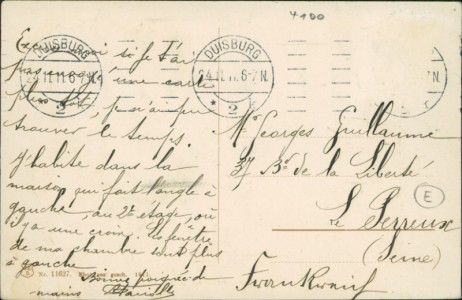 4100
DUISBURG
24.11.11.6-7N.
* 2
DUISBURG
24.11.11.6-7N.
* 2
Excuse moi si je t'ai
pas une carte
plus tôt, je n'ai pu
trouver le temps.
J'habite dans la
maison qui fait l'angle à
gauche, au 2e étage, où
il y a une croix. Les fenêtres
de ma chambre sont plus
à gauche.
Bonne poignée de
mains
Mr Georges Guillaume
37 Bd de la Liberté
Le Perreux
(Seine)
Frankreich
E
Nr. 11627.